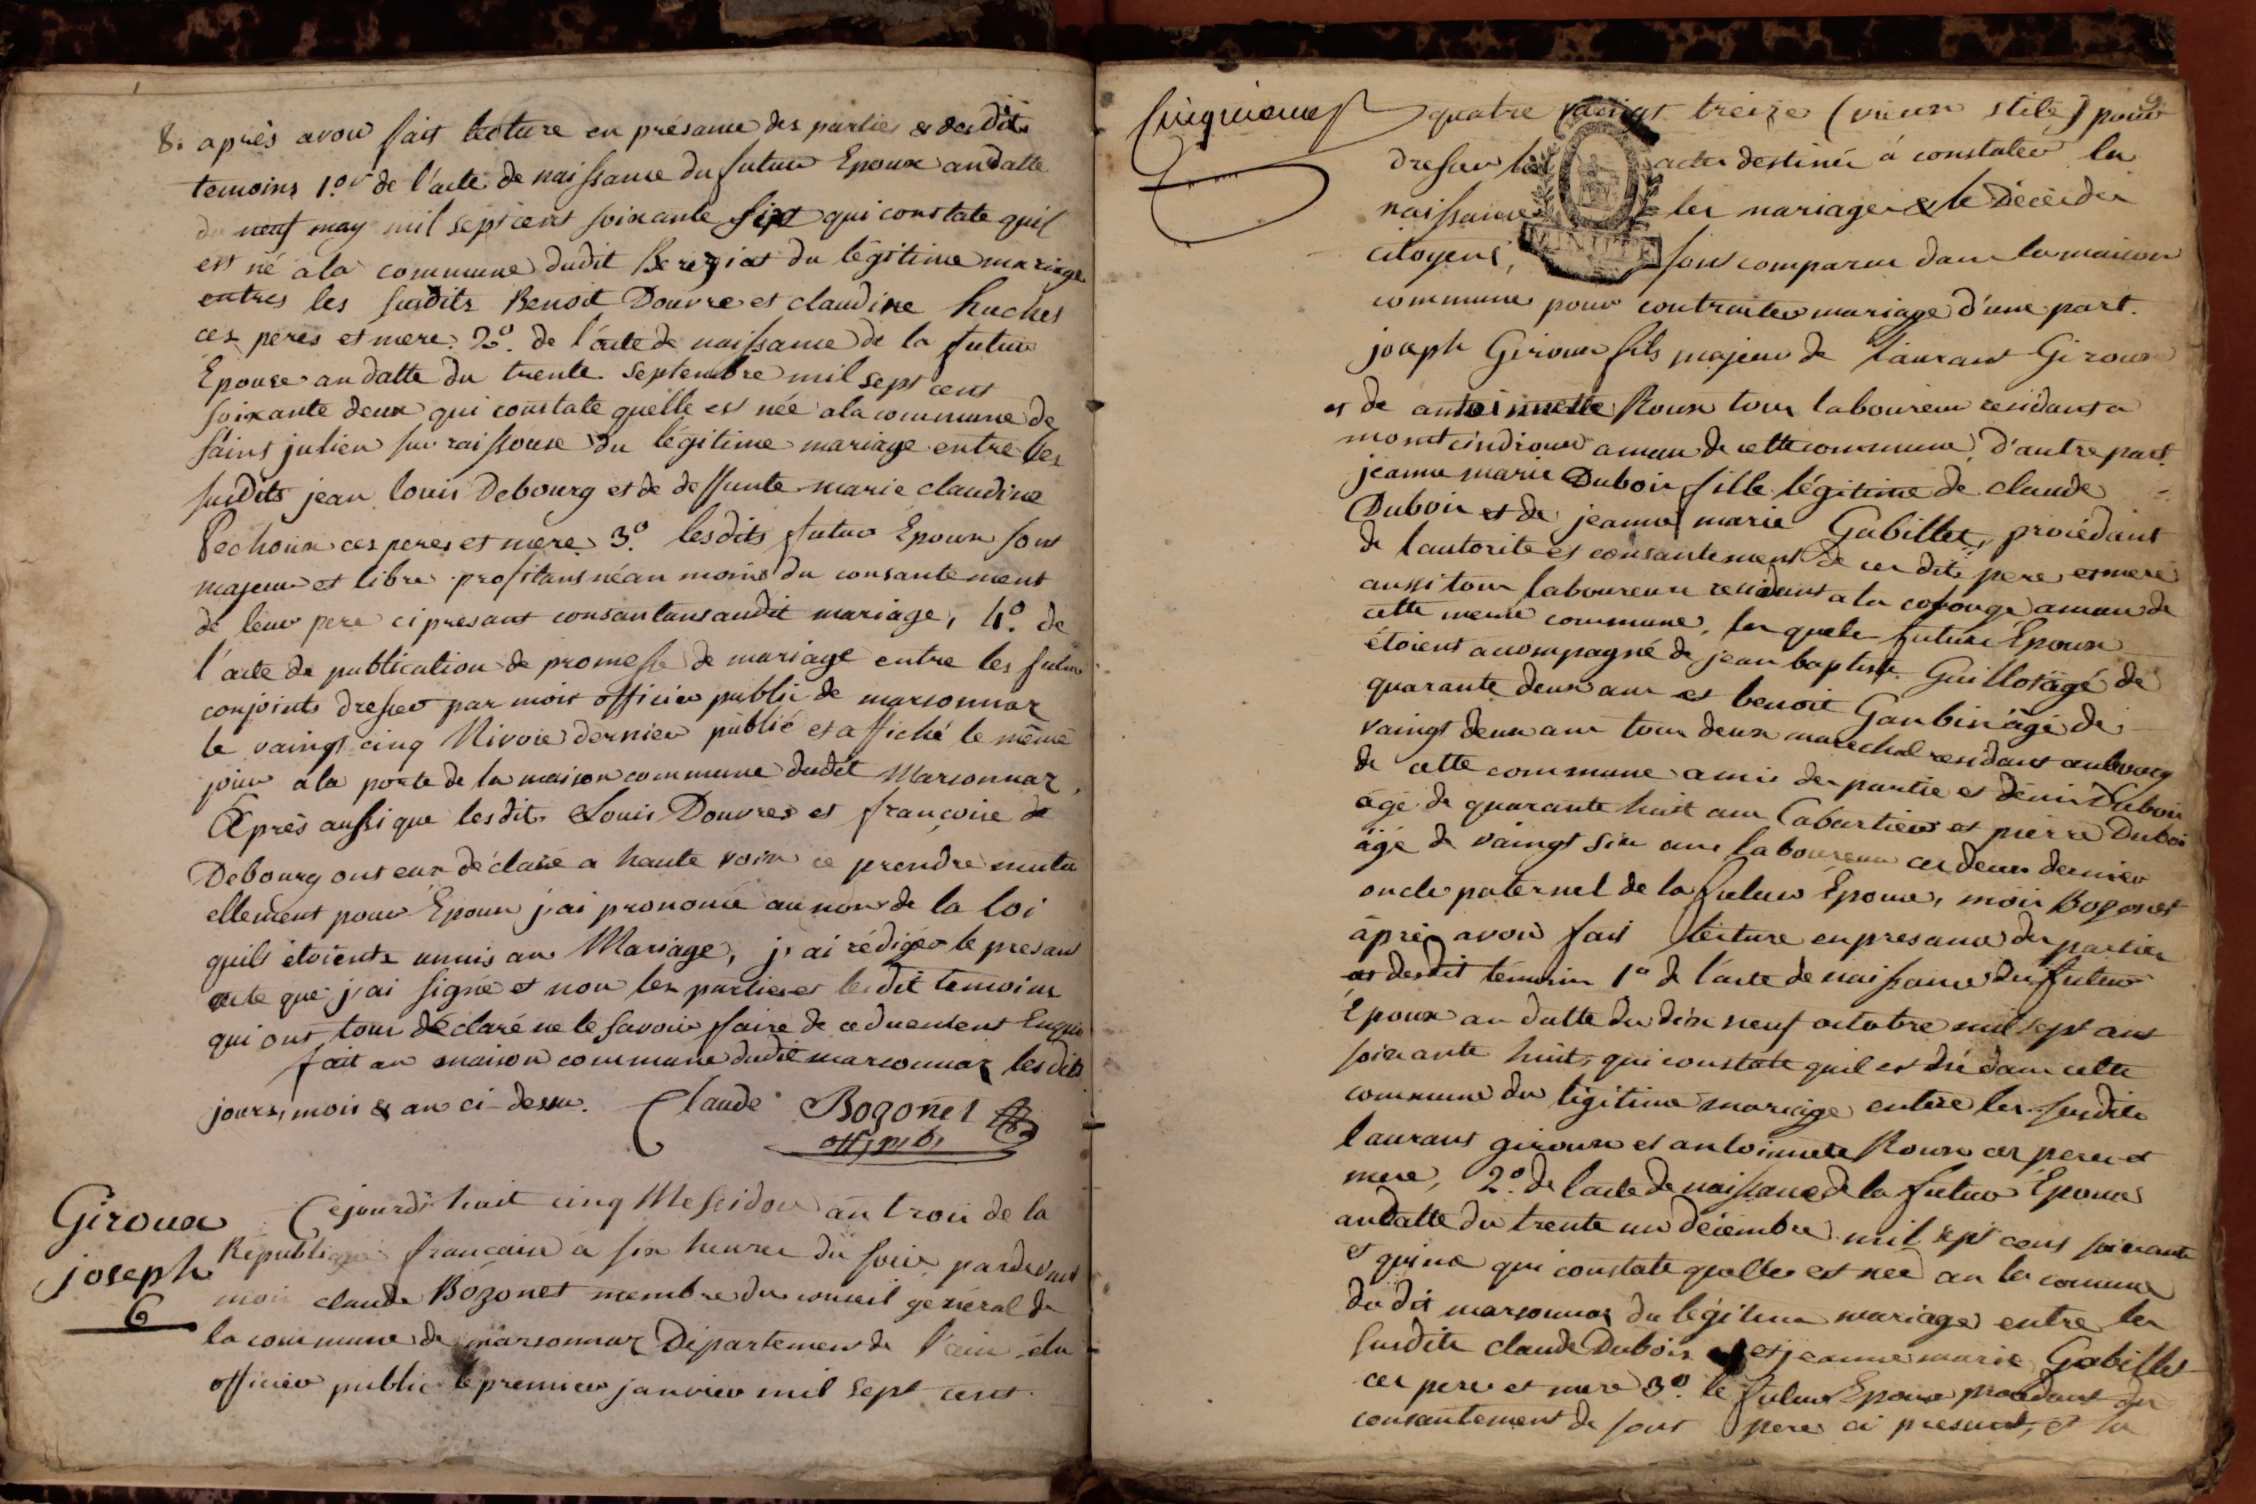 8. après avoir fait lecture en présance des parties & desdits
temoins 1.er de l'acte de naissance du futur Epoux an datte
du neuf may mil sept cens soixante sixt qui constate quil
est né a la commune dudit Bereziat du légitime mariage
entres les susdits Benoit Douvre et claudine huches
ces peres et mere. 2.o de l'acte de naissance de la future
Epouse an datte du trente Septembre mil sept cent
soixante deux qui constate quelle est née a la commune de
saint julien sur raissouse du légitime mariage entre les
susdits jean louis Debourg et de deffunte marie claudine
Pechoux ces peres et mere 3.o lesdits futur Epoux sont
majeur et libre profitans néan moins du consantement
de leur pere ci presant consantans audit mariage, 4.o de
l'acte de publication de promesse de mariage entre les futur
conjoints dresser par mois officier public de marsonnaz
le vaingt cinq Nivoie dernier publié et affiché le même
jour a la porte de la maison commune dudit Marsonnaz,
Après aussi que lesdits Louis Douvres et françoise de
Debourg ont eux déclaré a haute voix ce prendre mutu
ellement pour Epoux j'ai prononcé au nom de la loi
quils étoients unnis an Mariage, j'ai rédiger le presant
acte que j'ai signé et non les parties et lesdit temoins
qui ont tous déclaré ne le savoir faire de ce duement Enquis
fait an maison commune dudit marsonnaz lesdits
jours, mois & an ci-dessu. Claude Bozonet
off. pub.
Giroux
joseph
6
Cejourdhuit cinq Messidor an trois de la
République francaise a six heures du soir pardevant
mois claude Bozonet membre du conseil général de
la commune de marsonnaz Département de l'ain élu
officier public le premier janvier mil sept cent
Cinquieme
quatre vaingt treize (vieux stile) pour
dresser les actes destinés à constater la
naissance les mariages & le Décès des
citoyens, sont comparu dans la maison
MINUTE
commune pour contracter mariage d'une part.
joseph Giroux fils majeur de laurant Giroux
et de antoinnette Roux tous laboureur residant a
montcindroux ameau de cette commune, d'autre part
jeanne marie Dubois fille légitime de claude
Dubois et de jeanne marie Gabillet, procédant
de l'autorité et consantement de ces dits pere et mere
aussi tous laboureux residant a la coronge ameau de
cette meme commune, les quels futurs Epoux
étoient accompagné de jean baptiste Guillot âgé de
quarante deux ans et benoit Ganbin âgé de
vaingt deux ans tous deux marechal residant au bourg
de cette commune amis des partie et dénis Dubois
âgé de quarante huit ans Cabartier et pierre Dubois
âgé de vaingt six ans laboureur ces deux dernier
oncle paternel de la futur Epouse, mois Bozonet
âprès avoir fait lecture en presance des parties
et desdit témoins 1.o de l'acte de naissance du futur
Epoux an datte du dix neuf octobre mil sept ans
soixante huit, qui constate quil est né dans cette
commune du légitime mariage entre les susdits
laurans giroux et antoinnete Roux ces peres et
mere, 2.o de l'acte de naissance de la futur Epouse
an datte du trente un décembre mil sept cens soixante
et quinze qui constate quelle est née an la commune
du dit marsonnaz du légitime mariage entre les
susdits claude Dubois et jeanne marie Gabillet
ces pere et mere 3.o le futur Epoux procédant du
consantement de sont pere ci presant, & la